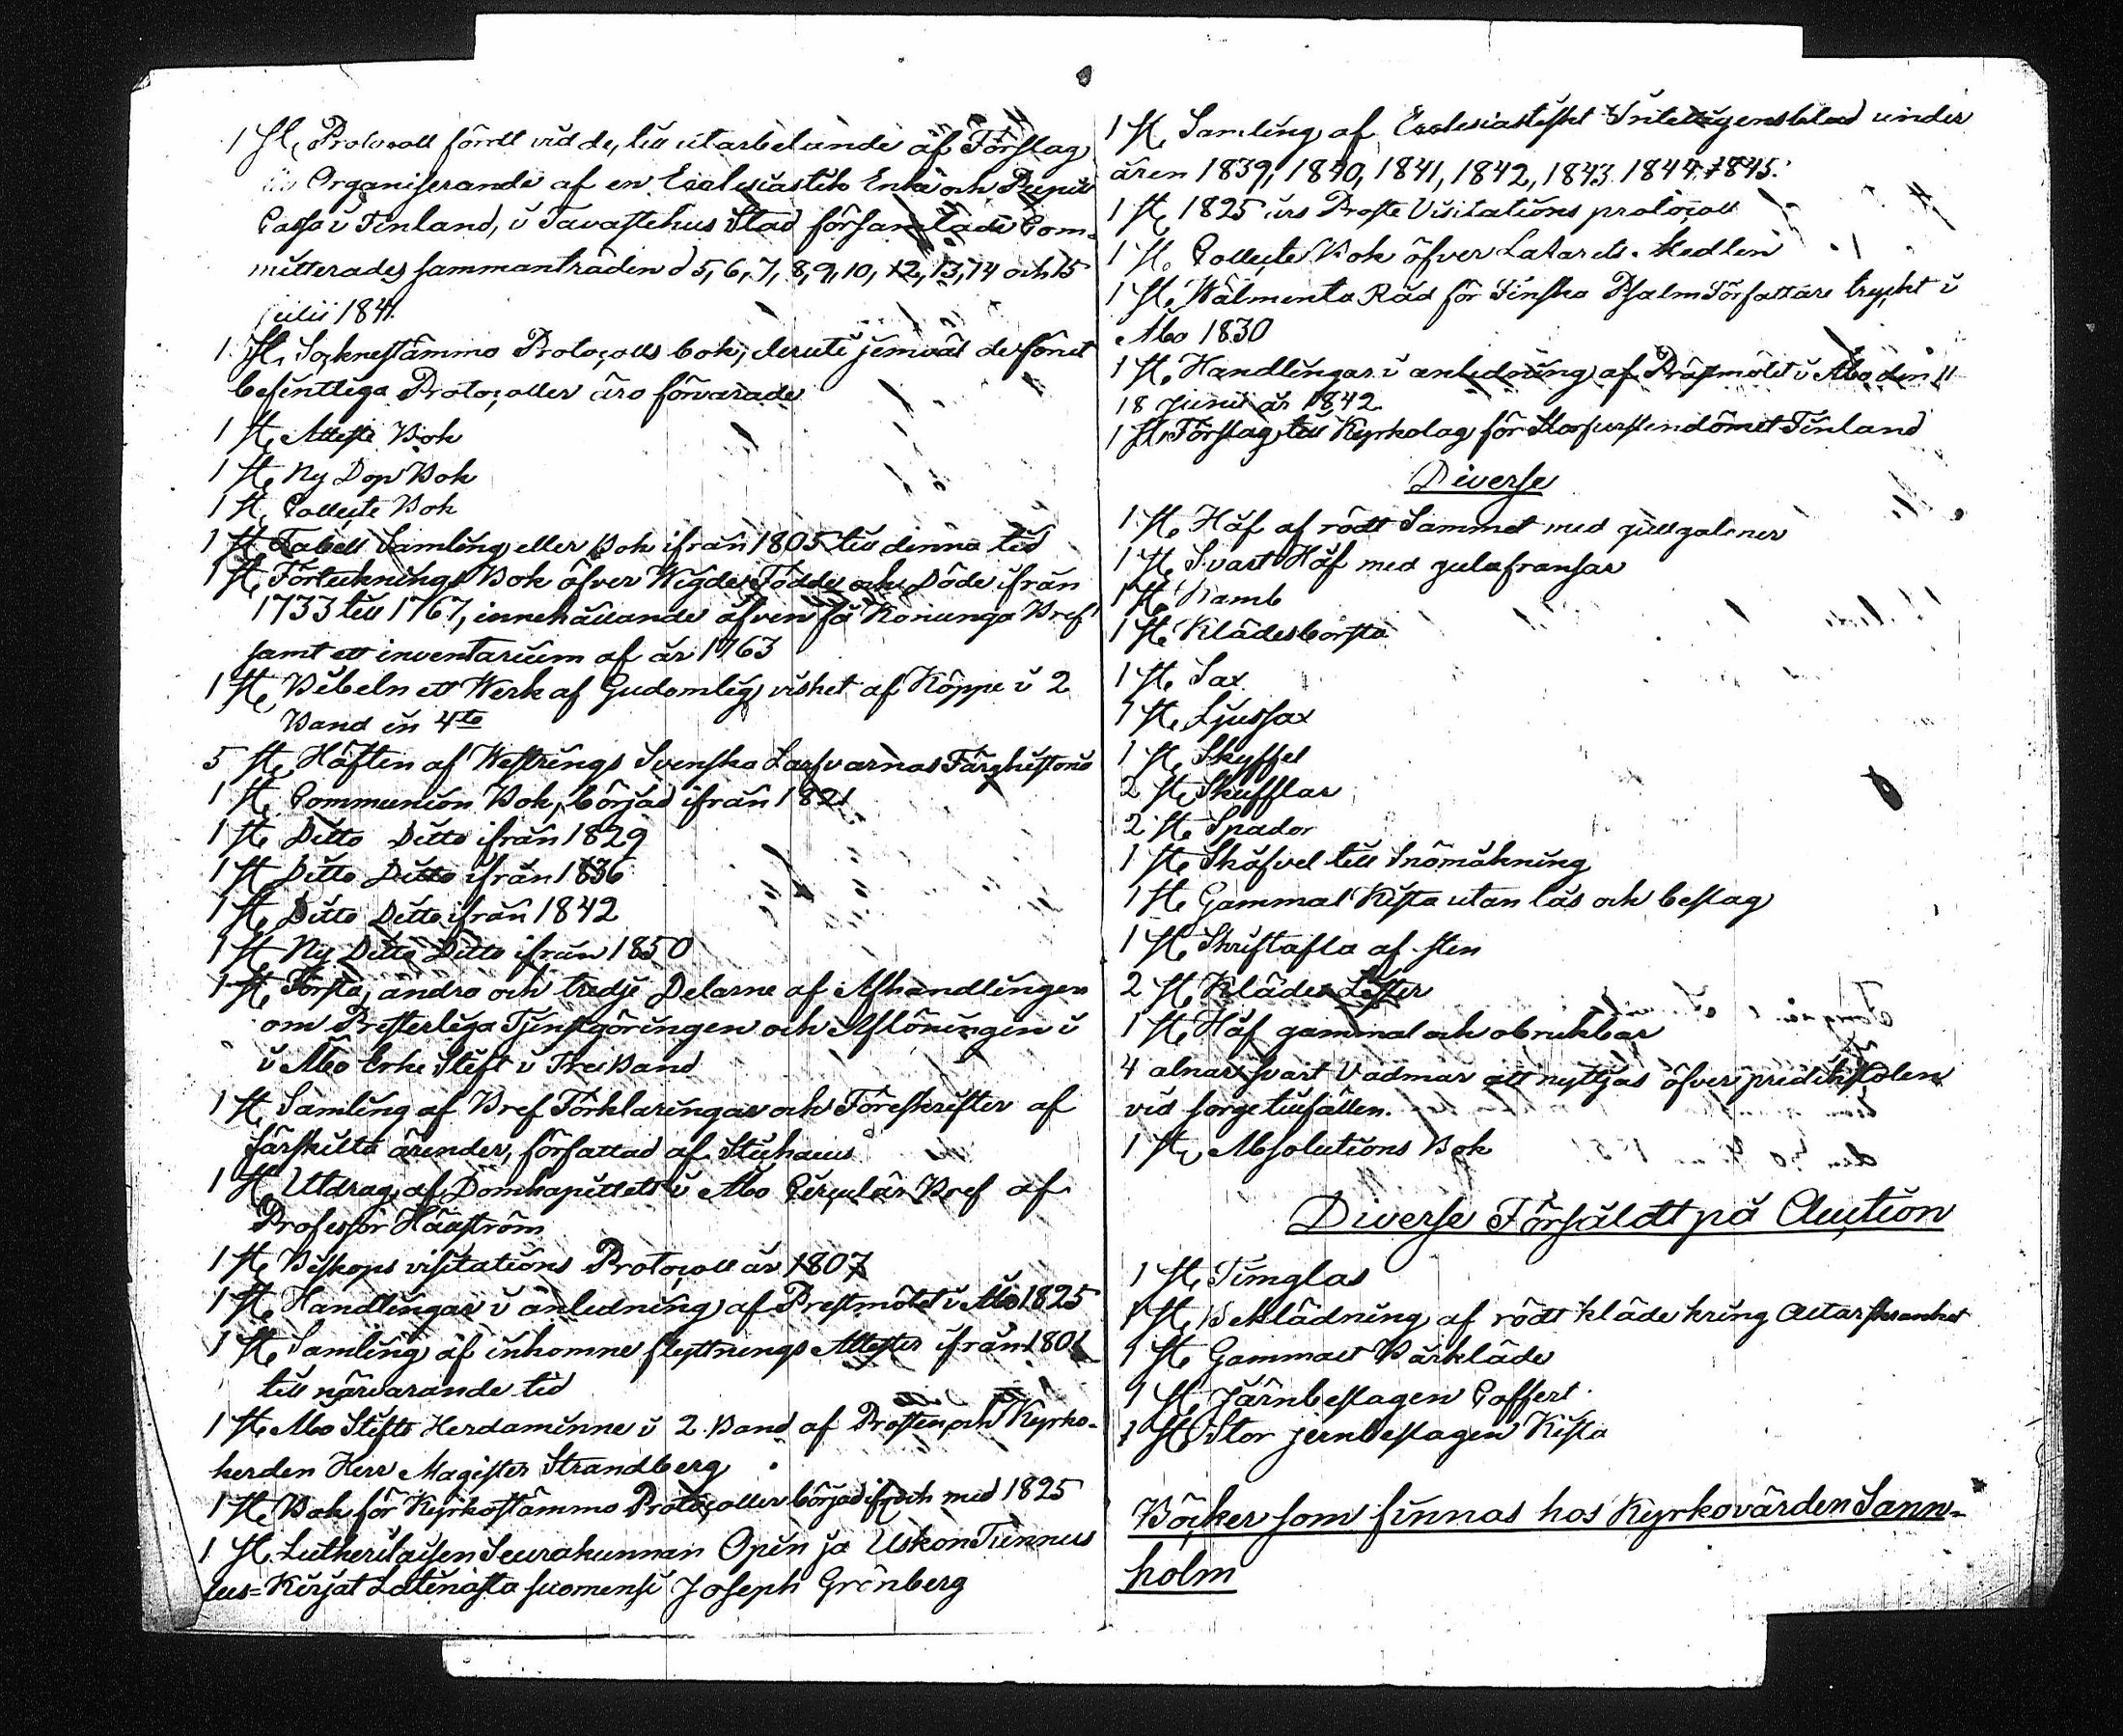 1 St. Protocoll fördt vid de, till utarbetande af Förslag
Organiserande af en Ecclesiastik Enke och Pupill
Cassa i Finland, i Tavastehus Stad församlade Com-
mitterades sammanträden d 5, 6, 7, 8, 9, 10, 12, 13, 14 och 15
julii 1841.
1 St. Socknestämmo Protocolls bok, deruti jemväl de förut
befintliga Protocoller äro förvarade
1 St. Attest Bok
1 St. Ny Dop Bok
1 St. Collecte Bok
1 St. Tabell Samling eller Bok ifrån 1805 till denna tid
1 St. Förtecknings Bok öfver Wigde Födde och Döde ifrån
1733 till 1767, innehållande äfven få Konunga Bref
samt ett inventarium af år 1763
1 St. Bibeln ett Werk af Gudomlig vishet af Köppe i 2
Band in 4to
5 St. Häften af Westrings Svenska Lafvarnas Färghistoria
1 St. Communion Bok, börjad ifrån 1821
1 St. Ditto Ditto ifrån 1829
1 St. Ditto Ditto ifrån 1836
1 St. Ditto Ditto ifrån 1842
1 St. Ny Ditto Ditto ifrån 1850
1 St. Första, andra och tredje Delarne af Afhandlingen
om Presterliga Tjenstgöringen och Aflöningen i
i Åbo Erke Stift i Tre Band
1 St. Samling af Bref Förklaringar och Föreskrifter af
särskilta ärender, författad af Stichaeus
1 St. Utdrag af Domkapitlets i Åbo Circulär Bref af
Professor Hällström
1 St. Biskops visitations Protocoll år 1807
1 St. Handlingar i anledning af Prestmötet i Åbo 1825
1 St. Samling af inkomne flyttnings Attester ifrån 1801
till närvarande tid
1 St. Åbo Stifts Herdaminne i 2 Band af Prosten och Kyrko-
herden Herr Magister Strandberg
1 St. Bok för Kyrkostämmo Protocoller börjad ifr. och med 1825
1 St. Lutherilaisen Seurakunnan Opin ja Uskon Tunnus
tus-Kirjat Latinasta suomensi Joseph Grönberg
1 St. Samling af Ecclesiastiskt Intelligensblad under
åren 1839, 1840, 1841, 1842, 1843. 1844. 1845.
1 St. 1825 års Proste Visitations protocoll
1 St. Collecte Bok öfver Lazarets-Medlen
1 St. Wälmenta Råd för Finska Psalm Författare tryckt i
Åbo 1830
1 St. Handlingar i anledning af Prästmötet i Åbo den 11
18 Junii år 1842.
1 St. Förslag till Kyrkolag för Storfurstendömet Finland
Diverse
1 St. Håf af rödt Sammet med gullgaloner
1 St. Svart Håf med gula fransar
1 St. Kamb
1 St. Klädesborsta
1 St. Sax
1 St. Ljussax
1 St. Skyffel
2 St. Skufflar
2 St. Spador
1 St. Skåfvel till Snömåkning
1 St. Gammal Kista utan lås och beslag
1 St. Skriftafla af sten
2 St. Klädes Lister
1 St. Håf gammal och obrukbar
4 alnar svart Vadmar att nyttjas öfver predikstolen
vid sorgetillfällen.
1 St. Absolutions Bok
Diverse Försåldt på Auction
1 St. Timglas
1 St. Beklädning af rödt kläde kring Altarskranket
1 St. Gammalt Bårkläde
1 St. Järnbeslagen Coffert
1 St. Stor jernbeslagen Kista
Böcker som finnas hos Kyrkovärden Sann-
holm